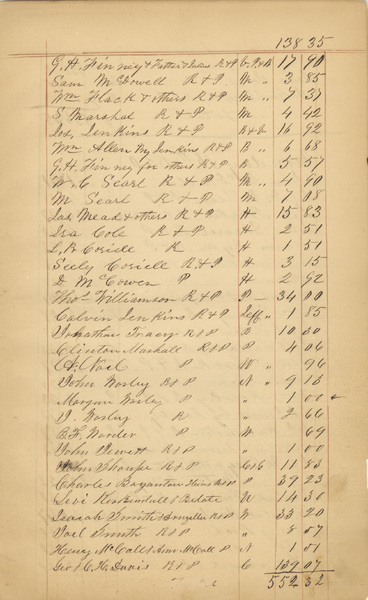 138 35
G. H. Finney & Potter & Jenkins R & P C, P & B 17 90
Sam McDowell R & P M " 3 85
Wm Flack & others R & P M " 7 37
S Marshal R & P M 4 42
Jos, Jenkins R & P 16 92
Wm Allen By Jenkins R & P B " 6 68
G. H. Finney for others R & P B 5 57
W. C Searl R & P M " 4 90
M Searl R & P M 7 08
Jas Mead & others R & P H 15 83
Ira Cole R & P H 2 51
L. B Coriell R H 1 51
Seely Coriell R & P H 3 15
D McCowen P H 2 92
Thos Williamson R & P P 34 00
Calvin Jenkins R & P Jeff " 1 85
Jonathan Tracy R & P B 10 30
Clinton Marshall R & P P 4 06
Noel P W " 96
John Worley R & P N " 9 13
Morgan Worley P " 1 00
J. Worley R " 2 66
B. F. Worder P W 69
John Jewett R & P " 1 00
John Thorpe R & P C & G 11 83
Charles Heirs R & P P 39 23
Levi Estate N 14 30
Isaiah Smith & R & P W 33 20
Joel Smith R & P " 8 57
Henry McCall & Ann McCall P N 1 01
Geo & C. H. Davis R & P C 139 07
552 32